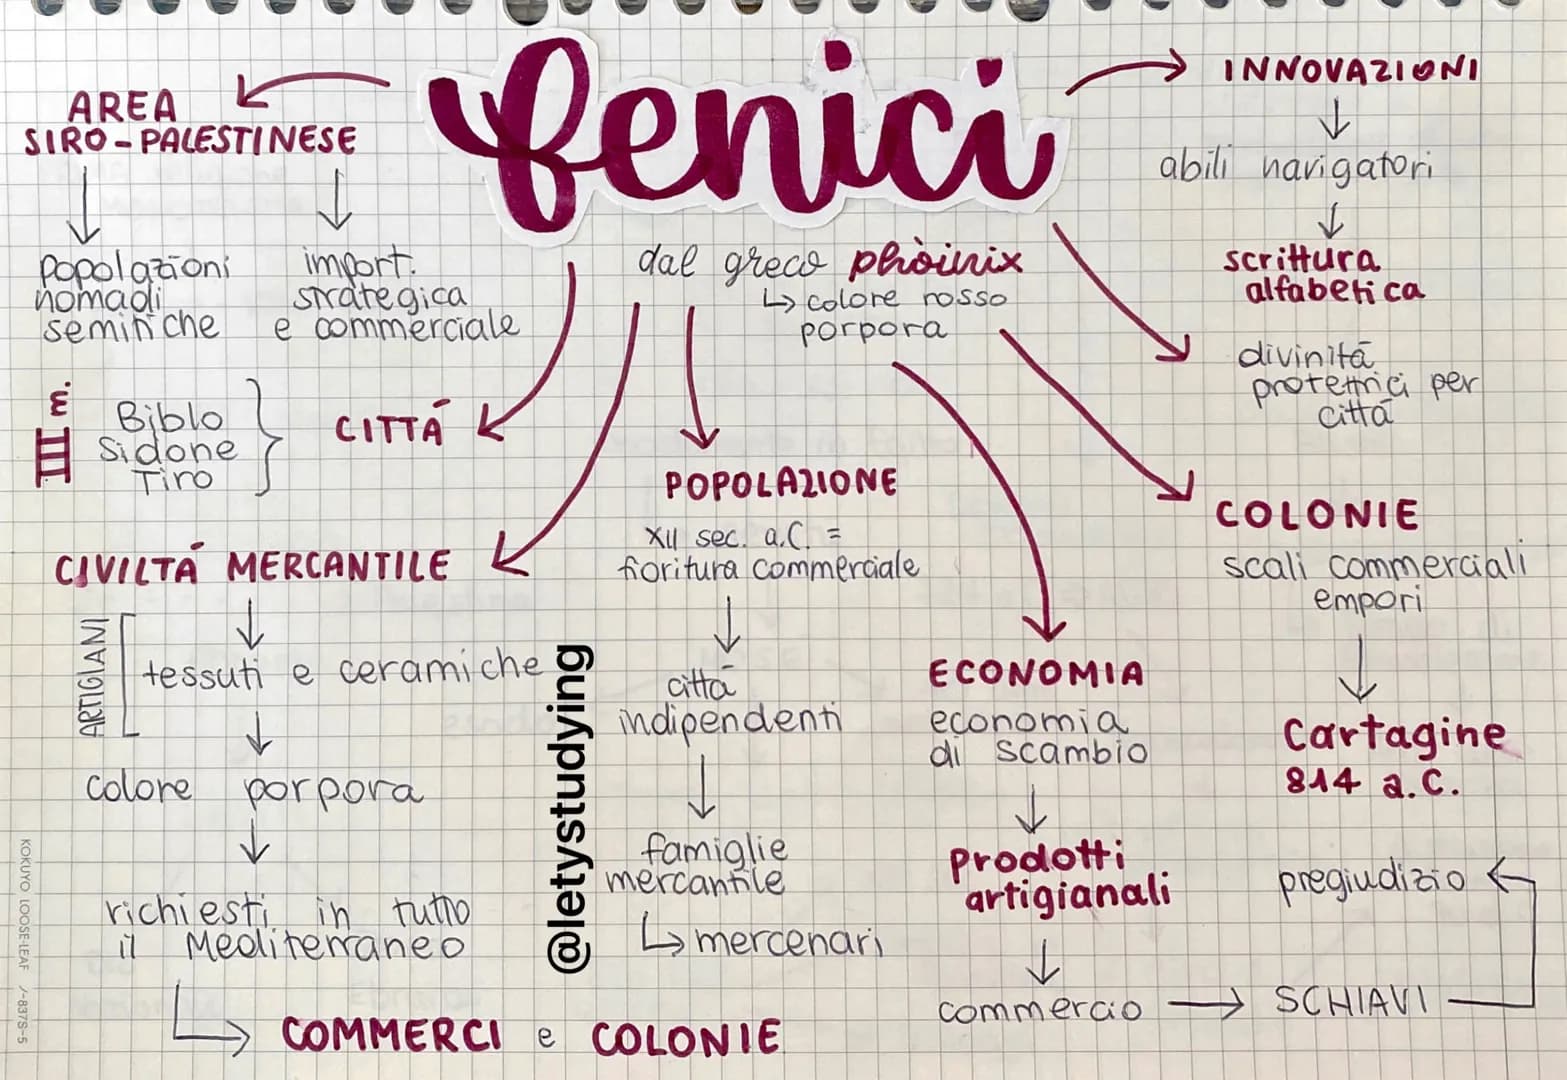 fenici
AREA
SIRO-PALESTINESE
popolazioni
nomadi
semitiche
import.
strategica
e commerciale
dal greco phòinix
↳ colore rosso
porpora
INNOVAZIONI
abili navigatori
scrittura
alfabetica
divinità
protettrici per
città
III m.
Biblo
Sidone
Tiro
CITTÁ
CIVILTÁ MERCANTILE
ARTIGIANI
tessuti e ceramiche
colore porpora
richiesti in tutto
il Mediterraneo
COMMERCI e COLONIE
POPOLAZIONE
XII sec. a.C. =
fioritura commerciale
città
indipendenti
famiglie
mercantile
↳ mercenari
ECONOMIA
economia
di scambio
Prodotti
artigianali
commercio → SCHIAVI
pregiudizio
COLONIE
scali commerciali
empori
Cartagine
814 a.C.
@letystudying
KOKUYO LOOSE-LEAF ノ-837S-5